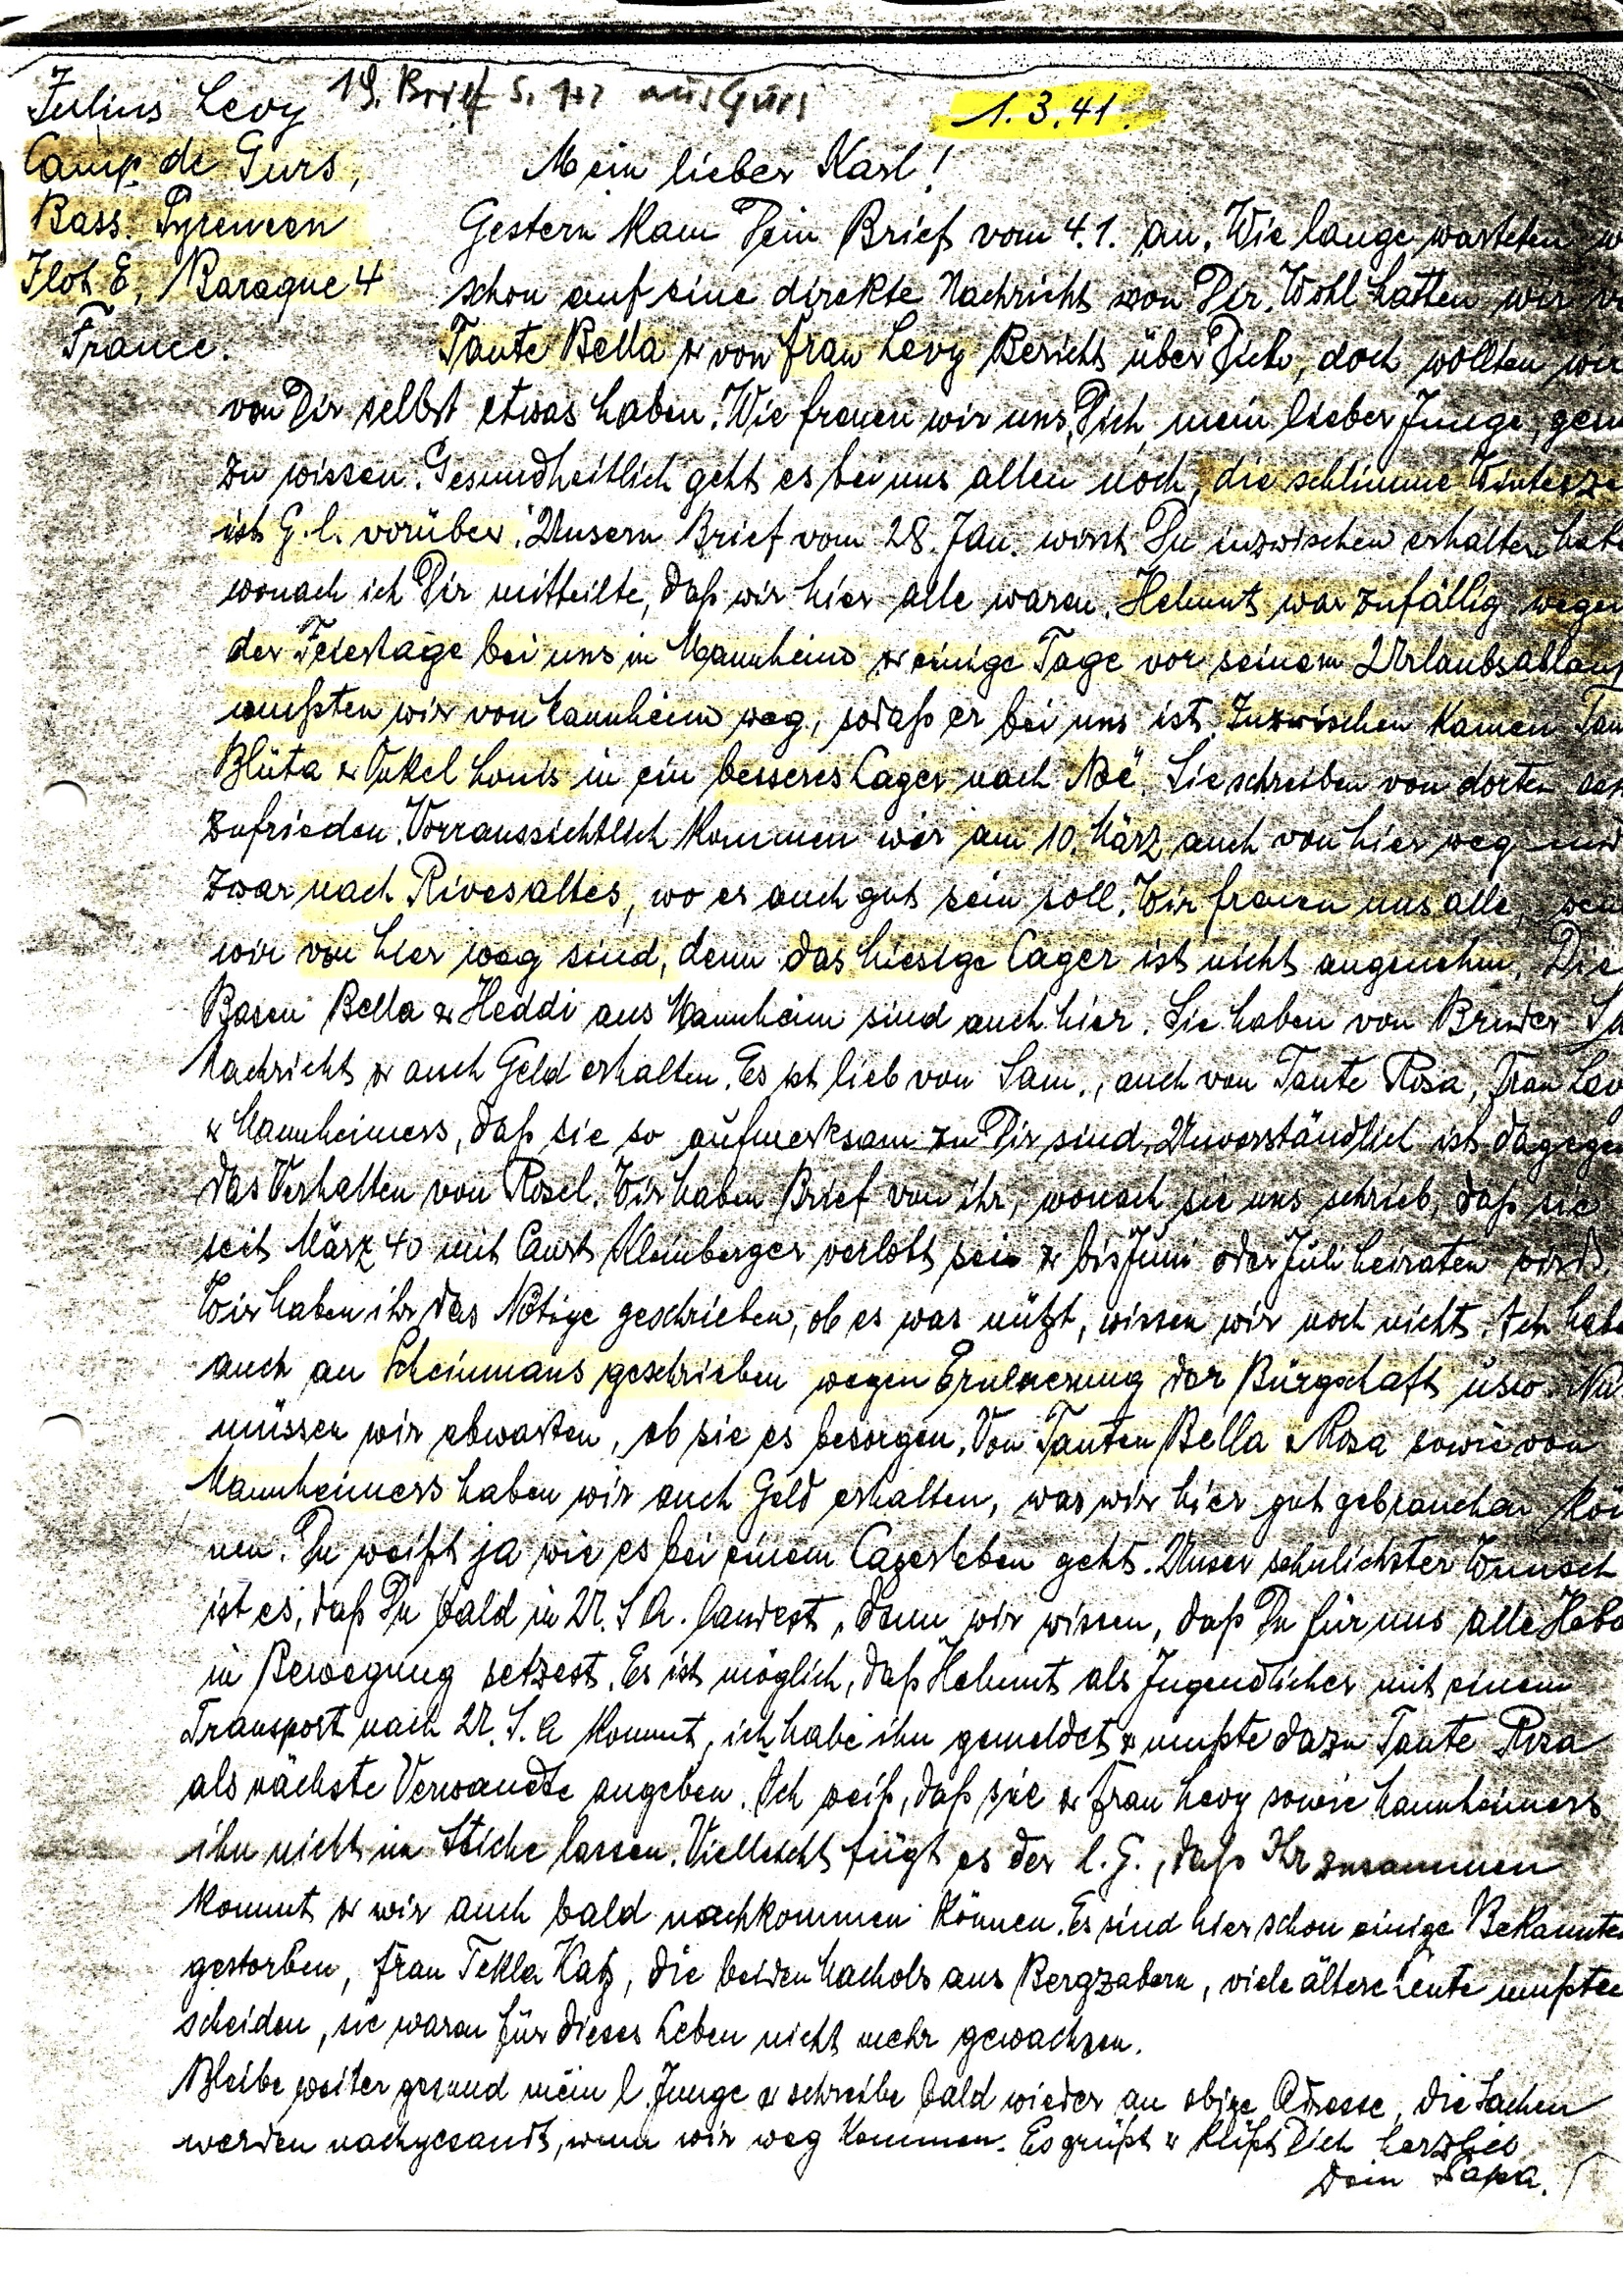 Julius Levy
19. Brief S. 1+2 aus Gurs
1.3.41.
Camp de Gurs,
Mein lieber Karl!
Bass. Pyreneen
Gestern kam Dein Brief vom 4.1. an. Wie lange warteten w
Ilot E, Baraque 4
schon auf eine direkte Nachricht von Dir. Wohl hatten wir v
France.
Tante Bella & von Frau Levy Bericht über Dich, doch wollten wir
von Dir selbst etwas haben. Wie freuen wir uns, Dich, mein lieber Junge, gesu
zu wissen. Gesundheitlich geht es bei uns allen noch, die schlimme Winterze
ist G. l. vorüber. Unsern Brief vom 28. Jan. wirst Du inzwischen erhalten habe
wonach ich Dir mitteilte, daß wir hier alle waren. Helmut war zufällig wegen
der Feiertage bei uns in Mannheim & einige Tage vor seinem Urlaubsablauf
mußten wir von Mannheim weg, sodaß er bei uns ist. Inzwischen kamen Tan
Blüta & Onkel Louis in ein besseres Lager nach Noé. Sie schreiben von dorten seh
zufrieden. Vorraussichtlich kommen wir am 10. März auch von hier weg und
zwar nach Rivesaltes, wo es auch gut sein soll. Wir freuen uns alle, wen
wir von hier weg sind, denn das hiesige Lager ist nicht angenehm. Die
Basen Bella & Heddi aus Mannheim sind auch hier. Sie haben von Bruder Sa
Nachricht & auch Geld erhalten. Es ist lieb von Sam., auch von Tante Rosa, Frau Lev
& Mannheimers, daß sie so aufmerksam zu Dir sind. Unverständlich ist dagege
das Verhalten von Rosel. Wir haben Brief von ihr, wonach sie uns schrieb, daß sie
seit März 40 mit Curt Kleinberger verlobt sei & bis Juni oder Juli heiraten wird.
Wir haben ihr das Nötige geschrieben, ob es was nützt, wissen wir noch nicht. Ich habe
auch an Scheinmans geschrieben wegen Erneuerung der Bürgschaft usw. Nu
müssen wir abwarten, ob sie es besorgen. Von Tanten Bella & Rosa sowie von
Mannheimers haben wir auch Geld erhalten, was wir hier gut gebrauchen kön
nen. Du weißt ja wie es bei einem Lagerleben geht. Unser sehnlichster Wunsch
ist es, daß Du bald in U. S. A. landest, denn wir wissen, daß Du für uns alle Hebe
in Bewegung setzest. Es ist möglich, daß Helmut als Jugendlicher mit einem
Transport nach U. S. A kommt, ich habe ihn gemeldet & mußte dazu Tante Rosa
als nächste Verwandte angeben. Ich weiß, daß sie & Frau Levy sowie Mannheimers
ihn nicht im Stiche lassen. Vielleicht fügt es der l. G., daß Ihr zusammen
kommt & wir auch bald nachkommen können. Es sind hier schon einige Bekannte
gestorben, Frau Tekla Katz, die beiden Machols aus Bergzabern, viele ältere Leute mußten
scheiden, sie waren für dieses Leben nicht mehr gewachsen.
Bleibe weiter gesund mein l. Junge & schreibe bald wieder an obige Adresse, die Sachen
werden nachgesandt, wenn wir weg kommen. Es grüßt & küßt Dich herzlich
Dein Papa.